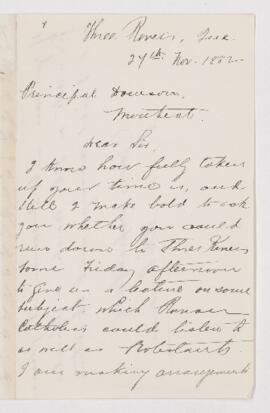 Three Rivers, Que
27th Nov. 1882.
Principal Dawson,
Montreal.
Dear Sir,
I know how fully taken
up your time is, and
still I make bold to ask
you whether you could
run down to Three Rivers
some Friday afternoon
to give us a lecture on some
subject which Roman
Catholics could listen to
as well as Protestants.
I am making arrangements